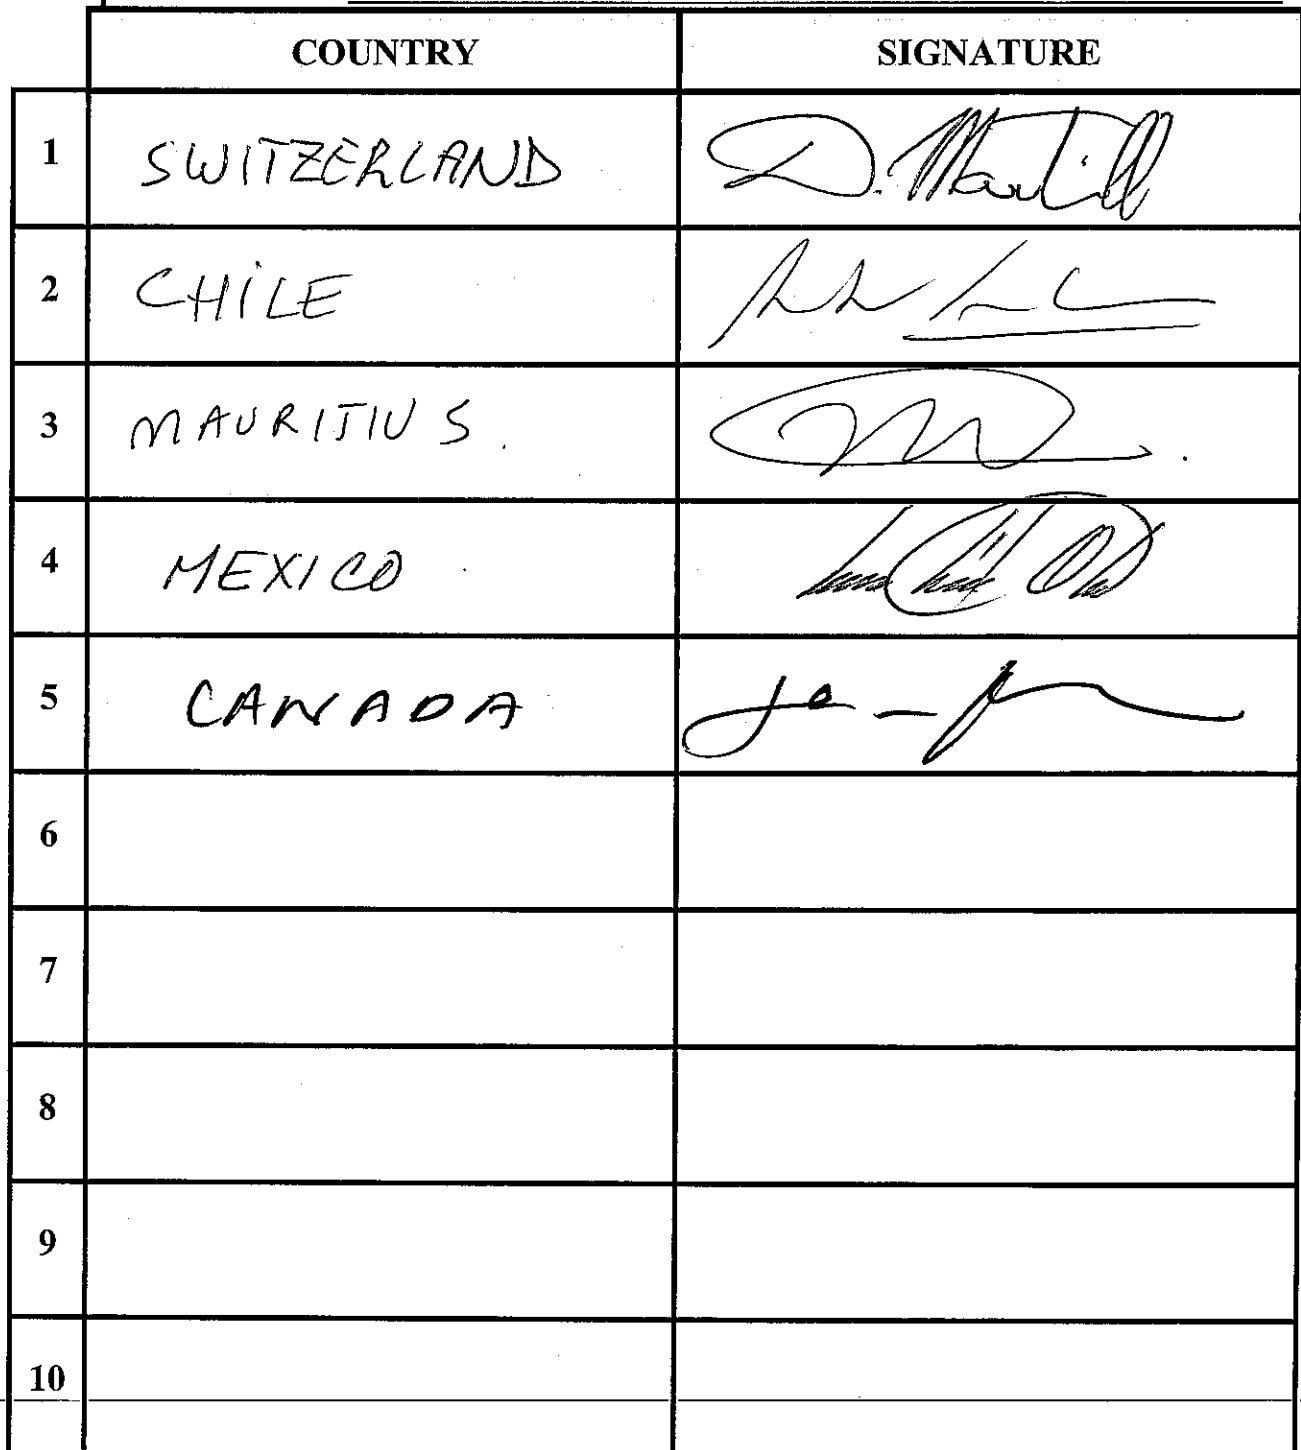 COUNTRY SIGNATURE
1 SWITZERLAND
2 CHILE
3 MAURITIUS.
4 MEXICO
5 CANADA
6
7
8
9
10